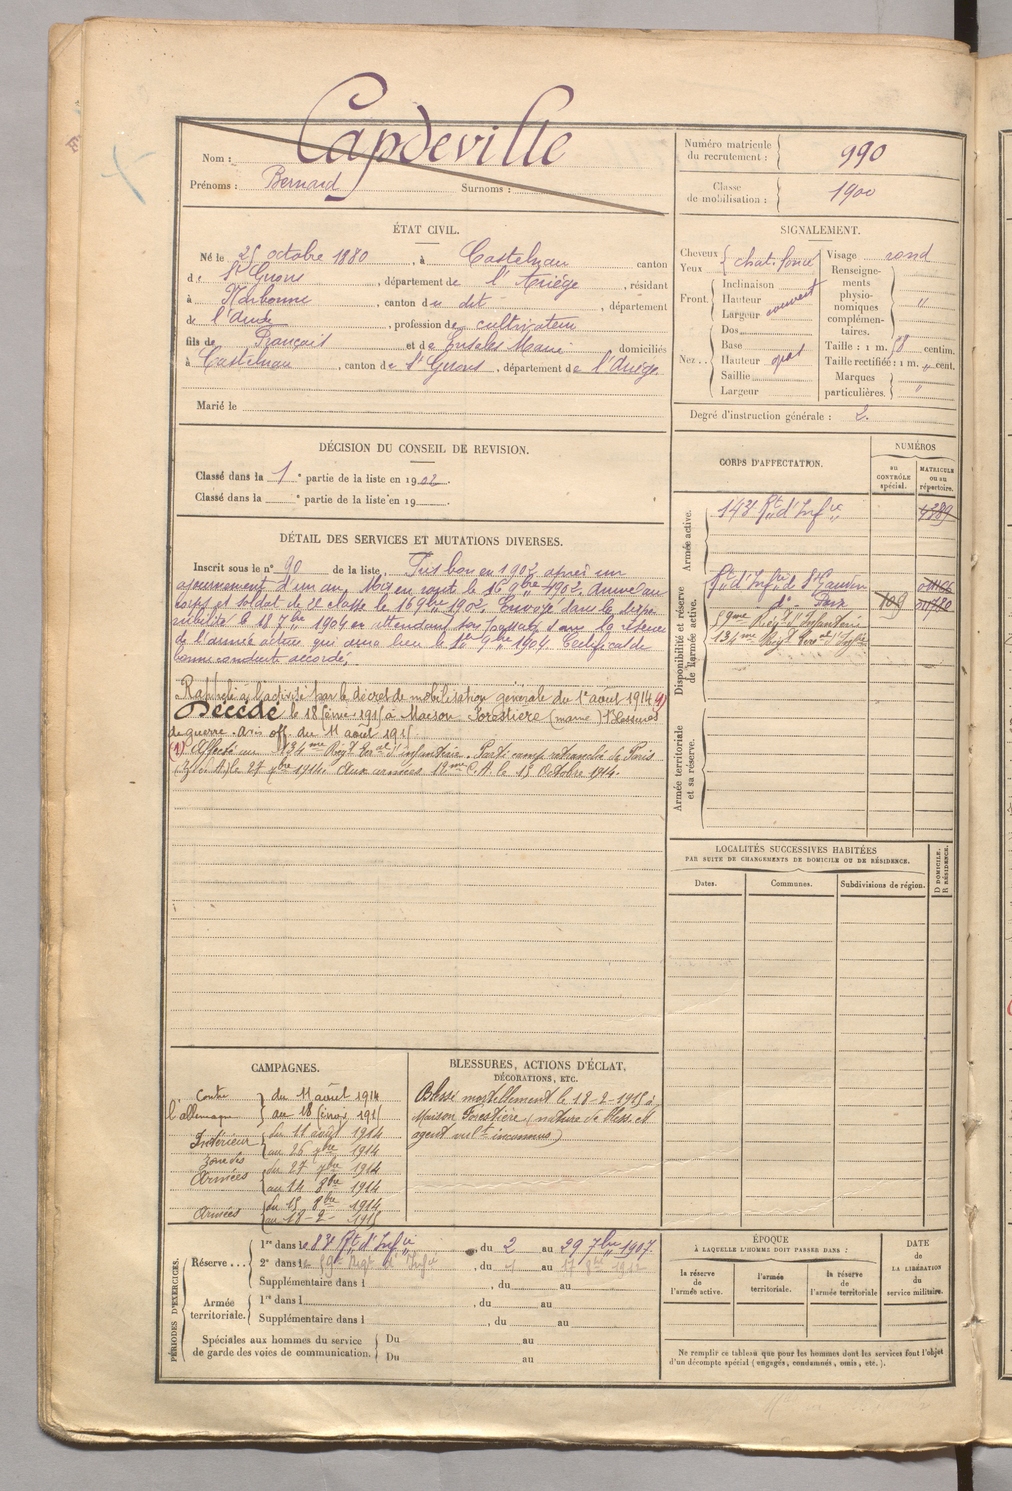 Nom : Capdeville
Prénoms : Bernard Surnoms :
Numéro matricule du recrutement : 990
Classe de mobilisation : 1900
ÉTAT CIVIL.
Né le 25 octobre 1880, à Castelnau canton
de St Girons, département de l'Ariège, résidant
à Narbonne, canton du dit, département
de l'Aude, profession de cultivateur
fils de Français et de Marie domiciliés
à Castelnau, canton de St Girons, département de l'Ariège.
Marié le
SIGNALEMENT.
Cheveux
Yeux chat. foncé
Front. Inclinaison
Hauteur
Largeur couvert
Nez. Dos
Base
Hauteur
Saillie
Largeur
Visage rond
Renseignements physionomiques complémentaires. "
Taille : 1 m. 58 centim.
Taille rectifiée : 1 m. " cent.
Marques particulières. "
Degré d'instruction générale : 2.
DÉCISION DU CONSEIL DE REVISION.
Classé dans la 1e partie de la liste en 1902.
Classé dans la e partie de la liste en 19
CORPS D'AFFECTATION.
NUMÉROS
au CONTRÔLE spécial.
MATRICULE ou au répertoire.
Armée active.
143e Rt d'Infie 4389
Disponibilité et réserve de l'armée active.
Rt d'Infie de St Gaudens
do Paris 109
59me Régt d'Infanterie
134me Régt Teral d'Infie
Armée territoriale et sa réserve.
DÉTAIL DES SERVICES ET MUTATIONS DIVERSES.
Inscrit sous le no 90 de la liste. Pris bon en 1902 après un
ajournement d'un an. Mis en route le 16 9bre 1902. Arrivé au
corps et soldat de 2e classe le 16 9bre 1902. Envoyé dans la dispo
nibilité le 18 7bre 1904 en attendant son passage dans la réserve
de l'armée active qui aura lieu le 1er 9bre 1904. Certificat de
bonne conduite accordé.
Rappelé à l'activité par le décret de mobilisation générale du 1er août 1914 (1)
Décédé le 18 février 1915 à Maison Forestière (marne) s. blessures
de guerre. avis off. du 11 août 1915
(1) Affecté au 134me Régt Teral d'infanterie. Parti camp retranché de Paris
(Z. des A.) le 27 7bre 1914. Aux armées C.A. le 15 Octobre 1914.
LOCALITÉS SUCCESSIVES HABITÉES
PAR SUITE DE CHANGEMENTS DE DOMICILE OU DE RÉSIDENCE.
Dates. Communes. Subdivisions de région.
D DOMICILE.
R RÉSIDENCE.
CAMPAGNES.
Contre l'allemagne du 11 août 1914
au 18 février 1915
Intérieur du 11 août 1914
au 26 7bre 1914
Zone des Armées du 27 7bre 1914
au 14 8bre 1914
Armées du 15 8bre 1914
au 18-2- 1915
BLESSURES, ACTIONS D'ÉCLAT,
DÉCORATIONS, ETC.
Blessé mortellement le 18-2-1915 à
Maison Forestière (nature de bless. et
agent vult inconnus)
PÉRIODES D'EXERCICES.
Réserve
1re dans le 83e Rt d'Infie, du 2 au 29 7bre 1907.
2e dans le 59e Régt d'Infie, du 1 au 17 1912
Supplémentaire dans l , du au
Armée territoriale.
1re dans l , du au
Supplémentaire dans l , du au
Spéciales aux hommes du service de garde des voies de communication.
Du au
Du au
ÉPOQUE
À LAQUELLE L'HOMME DOIT PASSER DANS :
la réserve de l'armée active.
l'armée territoriale.
la réserve de l'armée territoriale
DATE DE LA LIBÉRATION du service militaire.
Ne remplir ce tableau que pour les hommes dont les services font l'objet
d'un décompte spécial (engagés, condamnés, omis, etc.).